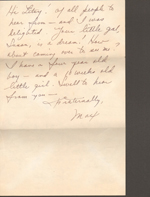 Hi "Petey" of all people to
hear from — and I was
delighted. Your little gal,
Susan, is a dream! How
about coming over to see me?
I have a four year old
boy — and a 6 weeks old
little girl. Swell to hear
from you —
Fraternally,
Marj